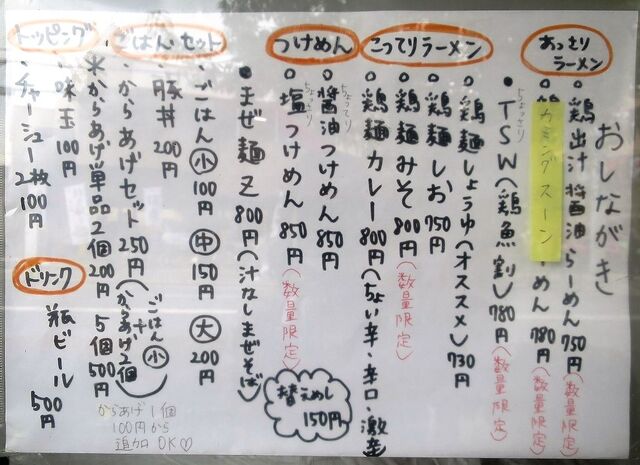 おしながき
あっさり
ラーメン
鶏出汁醤油らーめん 750円（数量限定）
カミングスーン
めん 780円（数量限定）
ちょっとり
TSW（鶏魚割し）780円（数量限定）
こってりラーメン
鶏麺しょうゆ（オススメし）730円
鶏麺しお 750円
鶏麺みそ 800円（数量限定）
鶏麺カレー 800円（ちょい辛・辛口・激辛）
つけめん
ちょってり
醤油つけめん 850円
ちょってり
塩つけめん 850円（数量限定）
替えめし
150円
まぜ麺Z 800円（汁なしまぜそば）
ごはん・セット
ごはん 小 100円 中 150円 大 200円
豚丼 200円
からあげセット 250円（ごはん小＋からあげ2個）
※からあげ単品 2個 200円 5個 500円
からあげ1個
100円から
追加OK♡
トッピング
味玉 100円
チャーシュー2枚 100円
ドリンク
瓶ビール 500円